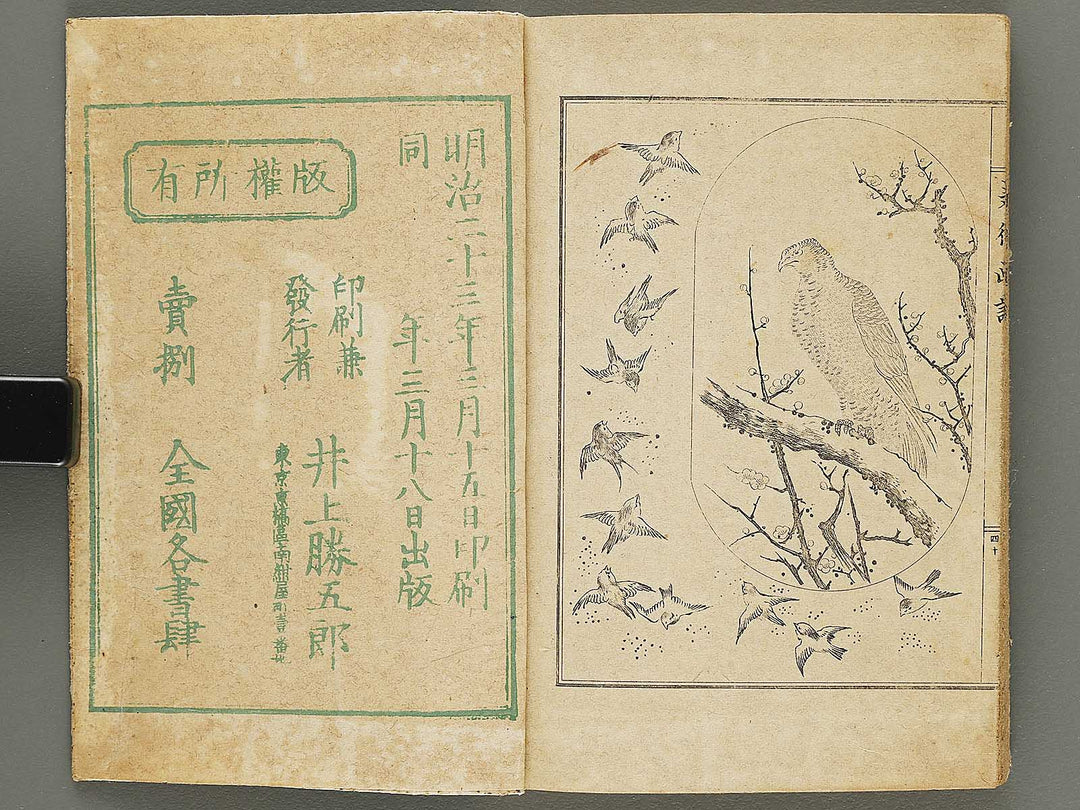 四十
明治二十三年三月十五日印刷
同 年三月十八日出版
版權所有
印刷兼
發行者
井上勝五郎
東京京橋區南紺屋町壹番地
賣捌 全國各書肆